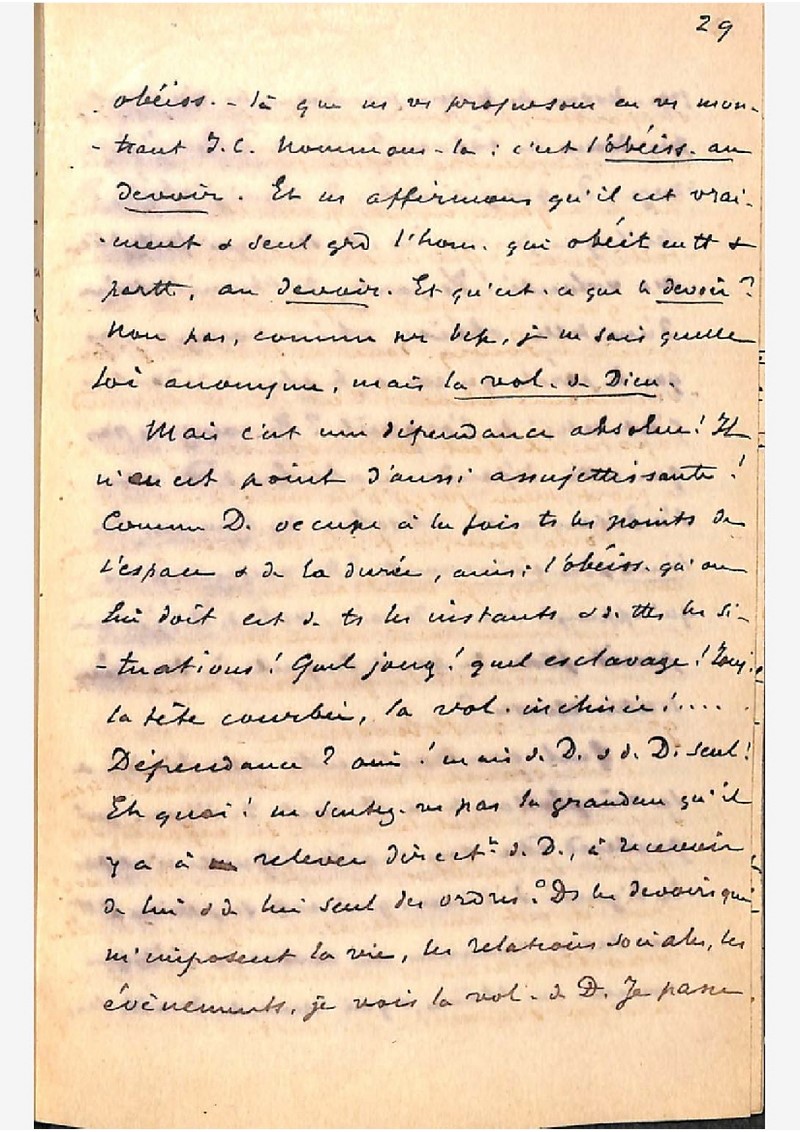 29
obéiss. - là que ns vs proposons en vs mon-
- trant J.C. Nommons-la : c'est l'obéiss. au
devoir. Et ns affirmons qu'il est vrai-
-ment & seul grd l'hom. qui obéit en tt &
partt, au devoir. Et qu'est-ce que le devoir ?
Non pas, comme pr bcp, je ne sais quelle
loi anonyme, mais la vol. de Dieu.
Mais c'est une dépendance absolue ! Il
n'en est point d'aussi assujettissante !
Comme D. occupe à la fois ts les points de
l'espace & de la durée, ainsi l'obéiss. qu'on
lui doit est de ts les instants & de ttes les si-
- tuations ! Quel joug ! quel esclavage ! Touj.
la tête courbée, la vol. inclinée !....
Dépendance ? oui ! mais de D. & de D. seul !
Eh quoi ! ne sentez-vs pas la grandeur qu'il
y a à relever directt de D., à recevoir
de lui & de lui seul des ordres ? Ds les devoirs que
m'imposent la vie, les relations sociales, les
évènements, je vois la vol. de D. Je passe